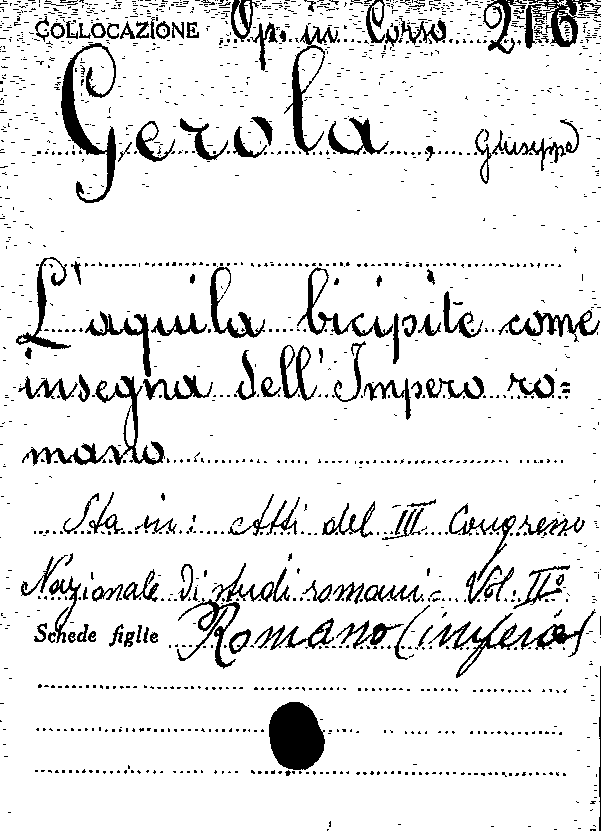 COLLOCAZIONE Op. in Corso 216
Gerola, Giuseppe
L'aquila bicipite come
insegna dell'Impero ro=
mano
Sta in: Atti del III Congresso
Nazionale di studi romani - Vol. IIº
Schede figlie Romano (impero)